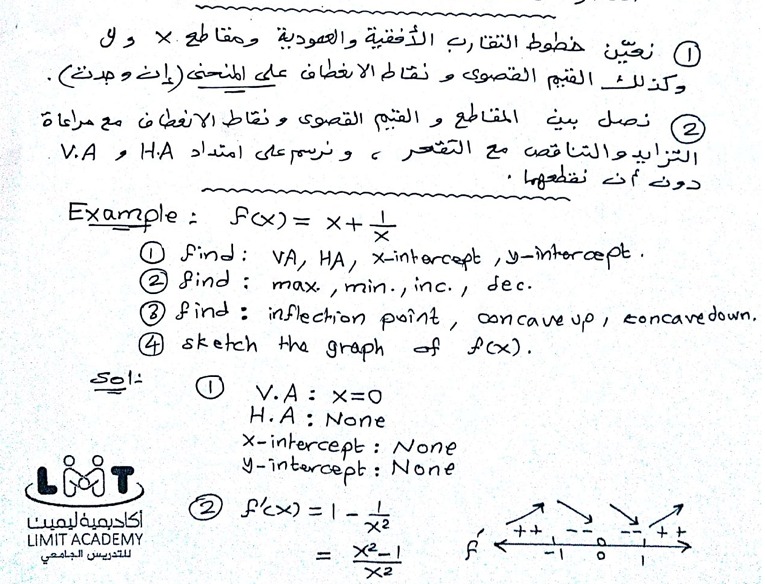 ① نعيّن خطوط التقارب الأفقية والعمودية ومقاطع x و y
وكذلك القيم القصوى و نقاط الانعطاف على المنحنى (إن وجدت).
② نصل بين المقاطع و القيم القصوى و نقاط الانعطاف مع مراعاة
التزايد والتناقص مع التقعر ، و نرسم على امتداد H.A و V.A
دون أن نقطعهما .
Example : f(x) = x + 1/x
① find : VA, HA, x-intercept , y-intercept .
② find : max. , min. , inc. , dec.
③ find : inflection point , concave up , concave down.
④ sketch the graph of f(x).
Sol:
① V.A : x=0
H.A : None
x-intercept : None
y-intercept : None
② f'(x) = 1 - 1/x²
= x²-1/x²
++ -- -- ++
f' -1 0 0 1
LIMIT
أكاديمية ليميت
LIMIT ACADEMY
للتدريس الجامعي